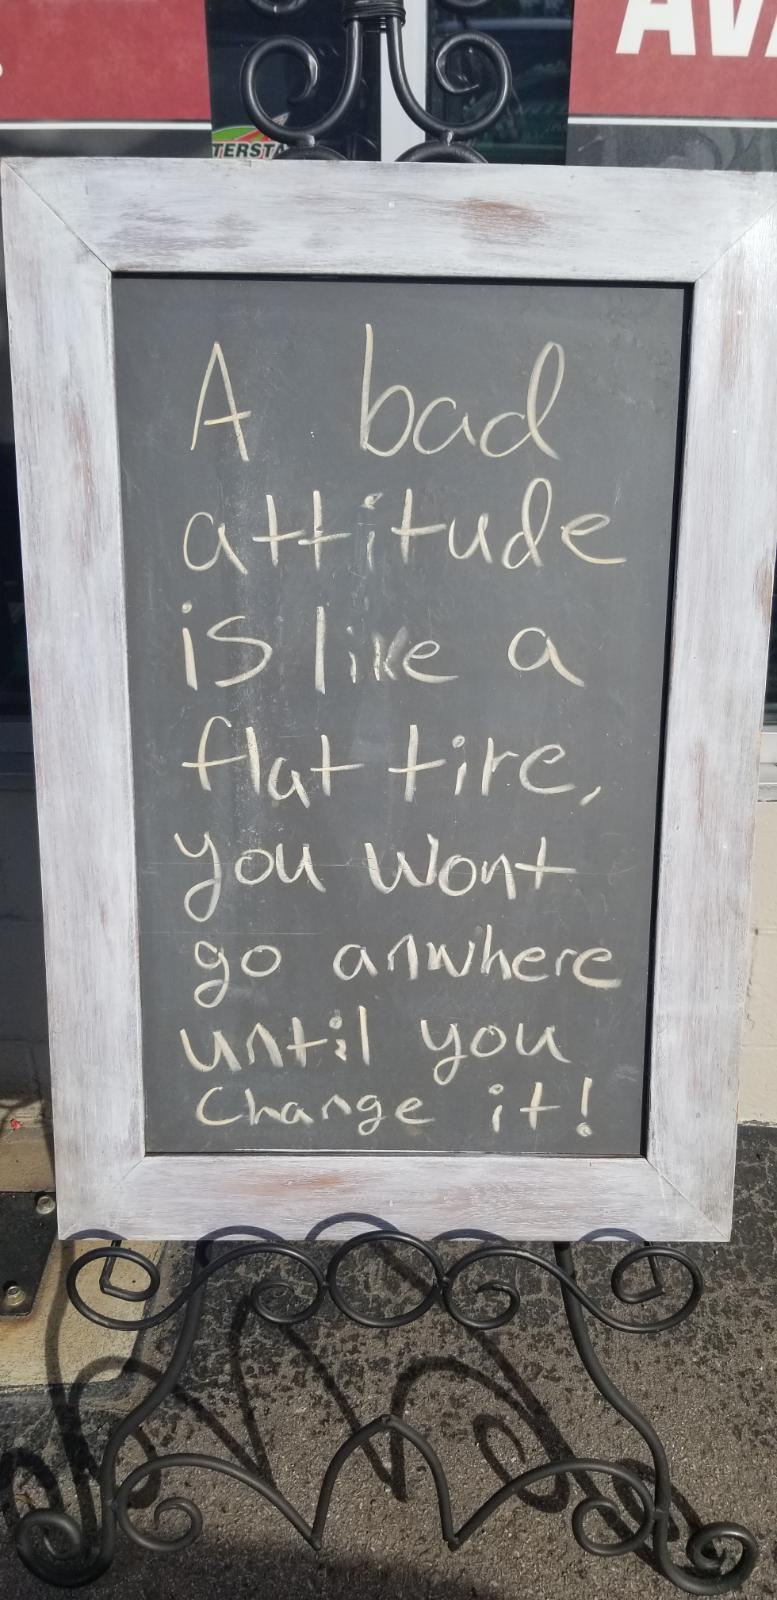 AV
TERSTA
A bad
attitude
is like a
flat tire,
you wont
go anwhere
until you
change it!